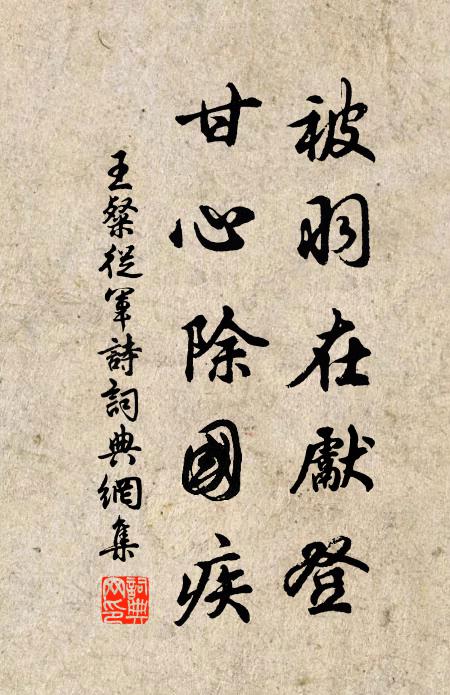 被羽在獻登
甘心除國疾
王粲從軍詩詞典網集
詞典网印